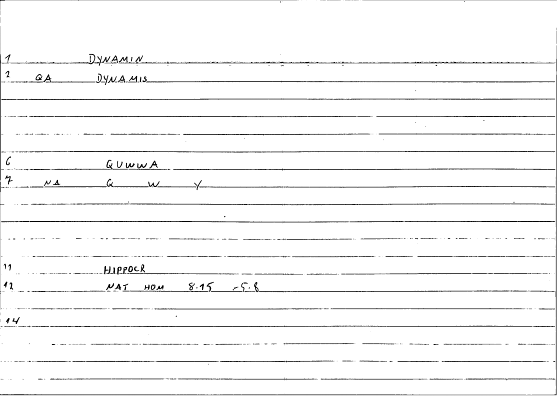 1 DYNAMIN
2 QA DYNAMIS
6 QUWWA
7 NA Q W Y
11 HIPPOCR
12 NAT HOM 8.15 -5.8
14